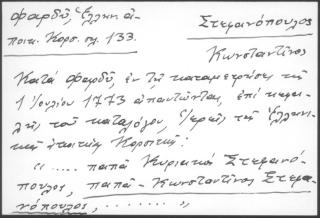 Φαρδύ, Ἑλλην. ἀ-
ποικ. Κορσ. σελ. 133.
Στεφανόπουλος
Κωνσταντῖνος
Κατά Φαρδύ, ἐν τῇ καταμετρήσει τῆς
1 Ἰουλίου 1773 ἀπαντῶνται, ἐπί κεφα-
λῆς τοῦ καταλόγου, ἱερεῖς τῆς Ἑλλην-
ικῆς ἀποικίας Κορσικῆς:
"..... παπᾶ Κυριακός Στεφανό-
πουλος, παπᾶ-Κωνσταντῖνος Στεφα-
νόπουλος, ........,